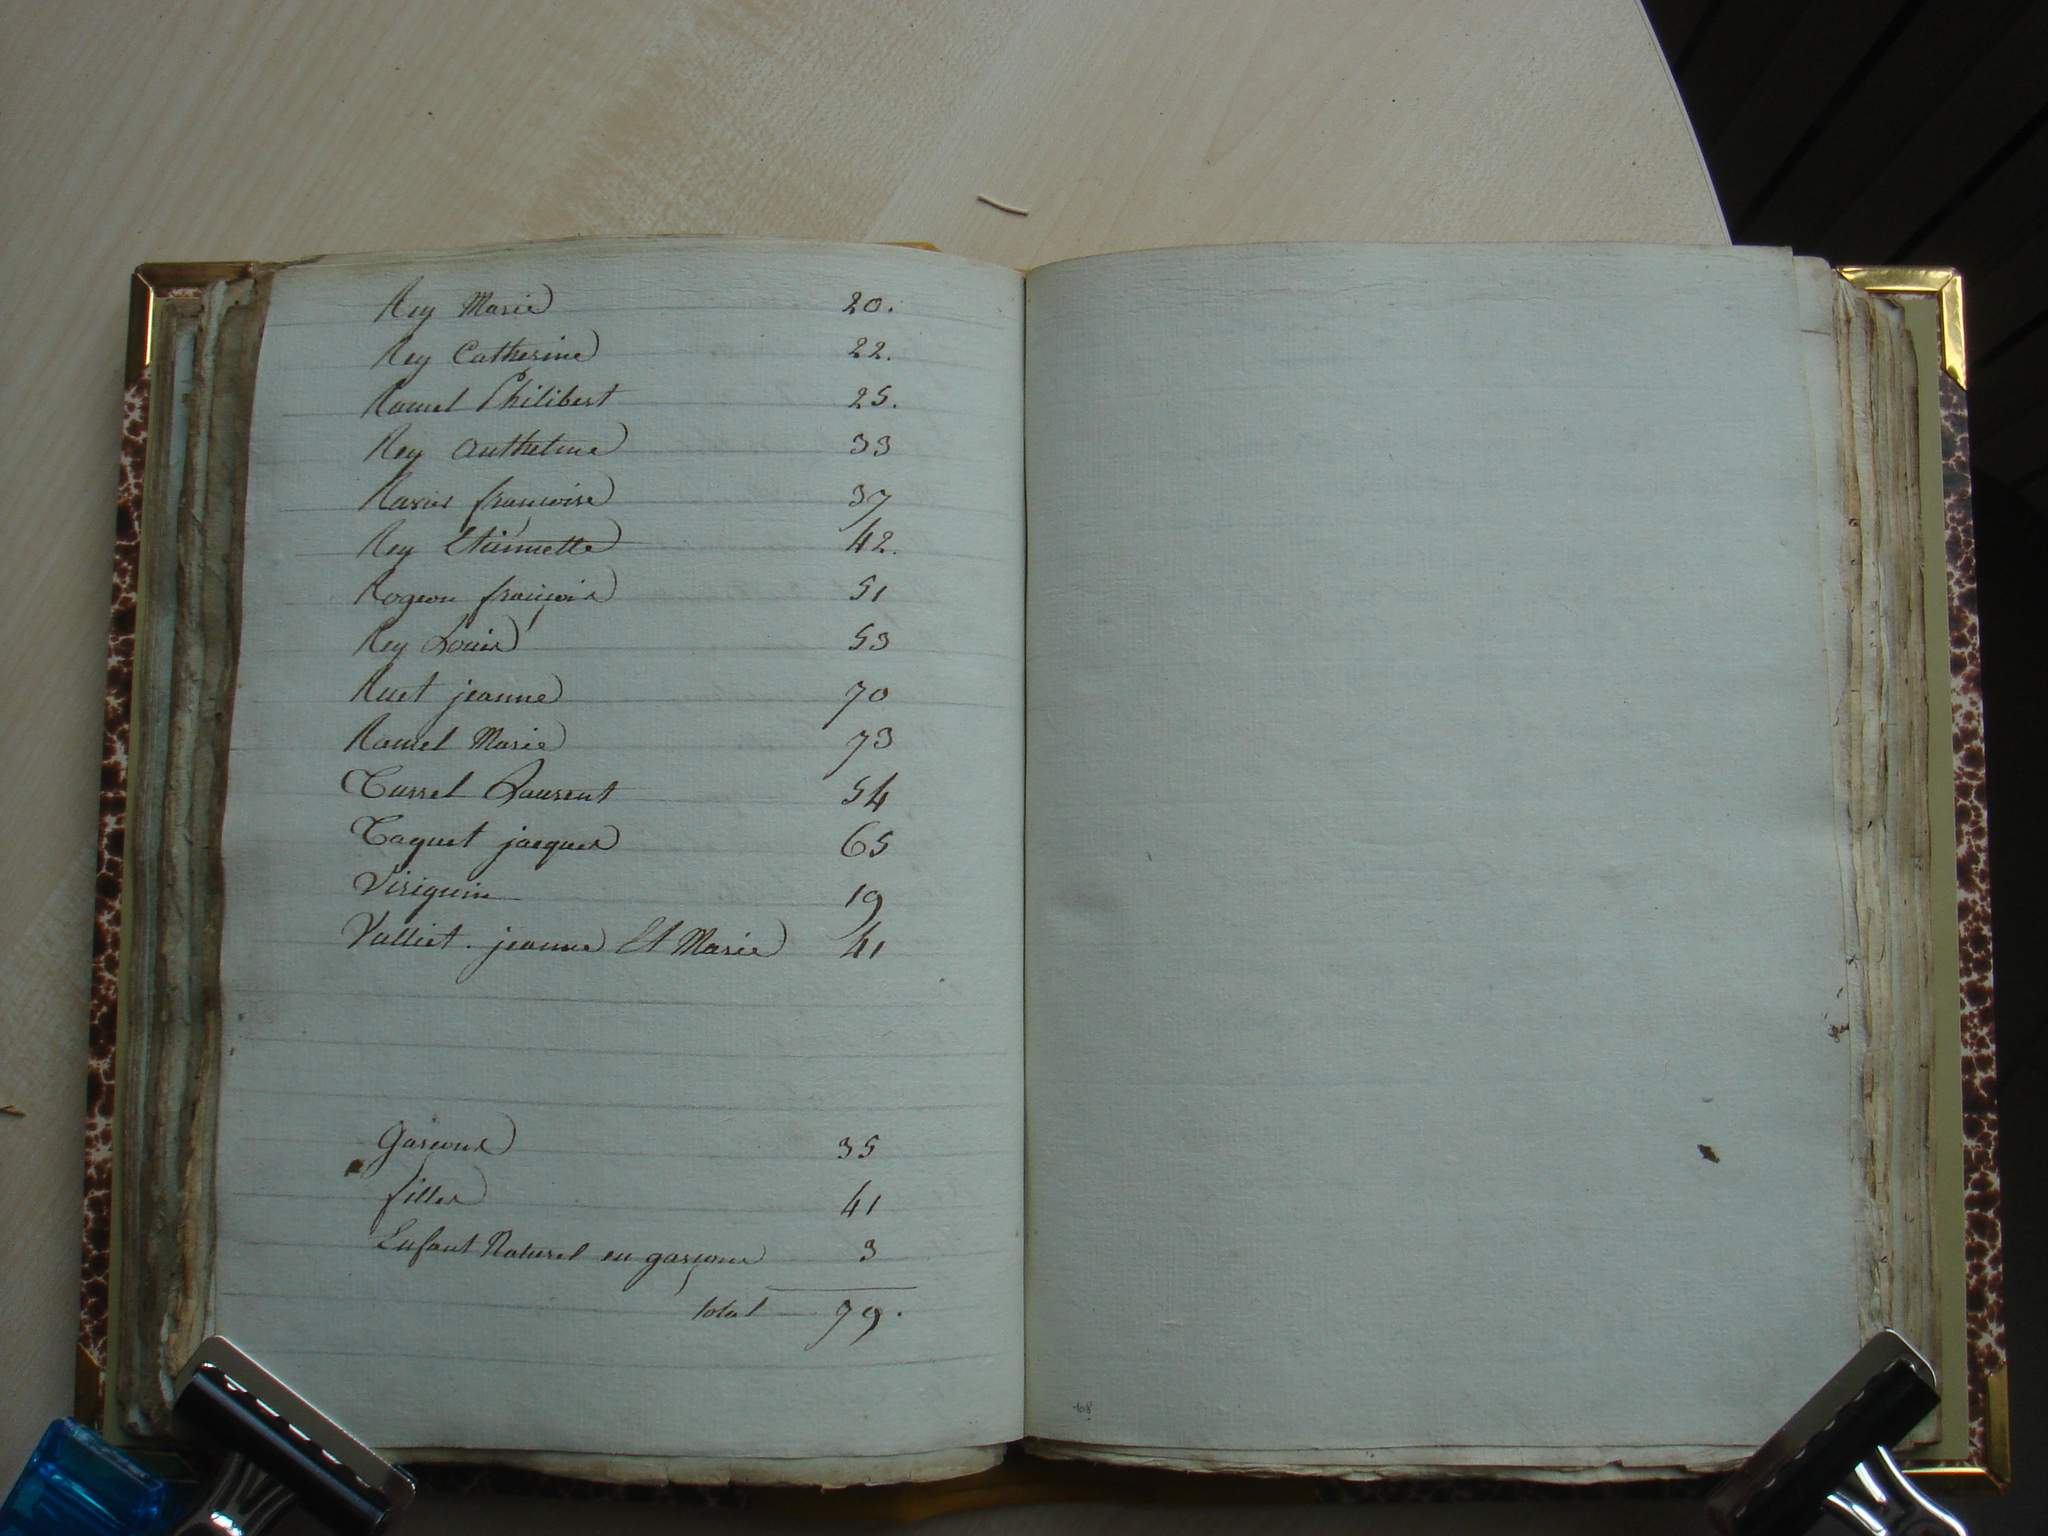 Rey Marie 20.
Rey Catherine 22.
Ramel Philibert 25.
Rey Anthelme 33
Françoise 37
Rey Etiennette 42.
Rogeon françois 51
Rey Louis 53
Ruet jeanne 70
Ramel Marie 73
Laurent 54
Taquet jacques 65
19
Valliet. jeanne Et Marie 41
Garçons 35
filles 41
Enfant Naturel en garçons 3
total — 79.
108